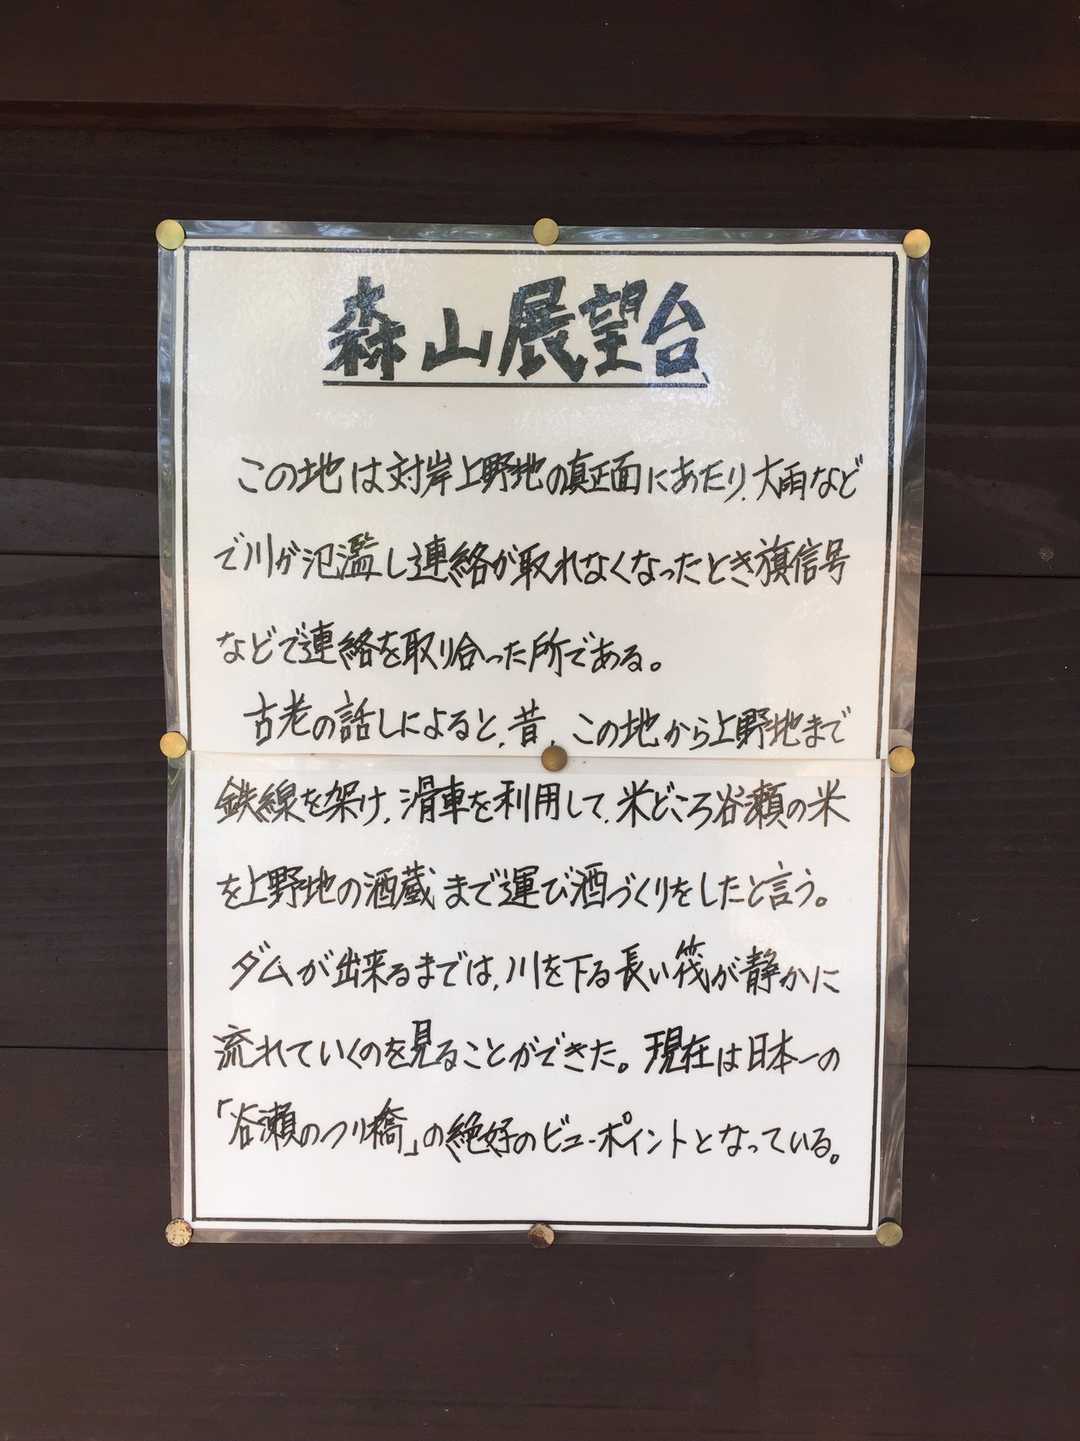 森山展望台
この地は対岸上野地の真正面にあたり、大雨など
で川が氾濫し連絡が取れなくなったとき旗信号
などで連絡を取り合った所である。
古老の話しによると、昔、この地から上野地まで
鉄線を架け、滑車を利用して、米どころ谷瀬の米
を上野地の酒蔵まで運び酒づくりをしたと言う。
ダムが出来るまでは、川を下る長い筏が静かに
流れていくのを見ることができた。現在は日本一の
「谷瀬のつり橋」の絶好のビューポイントとなっている。